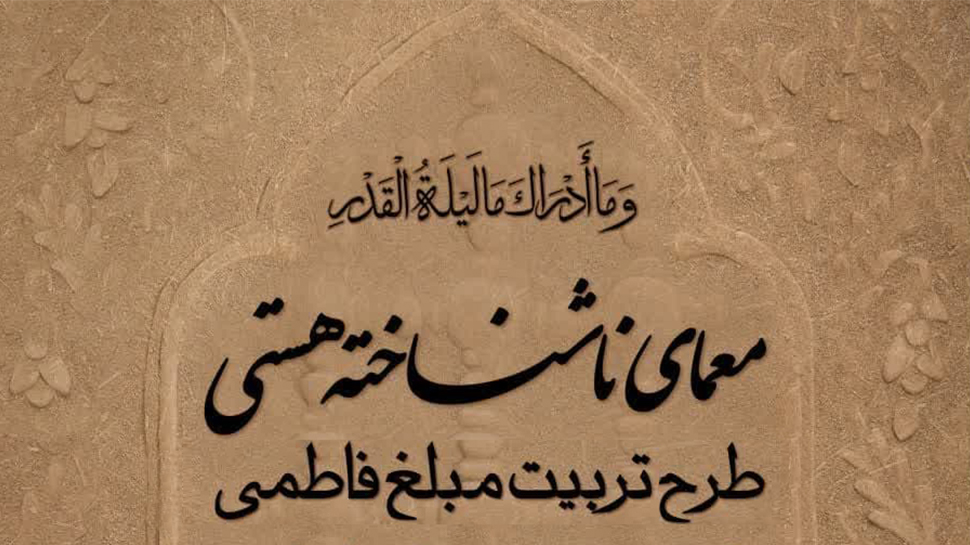 وَمَا أَدْرَاكَ مَا لَيْلَةُ الْقَدْرِ
معمای ناشناخته هستی
طرح تربیت مبلغ فاطمی